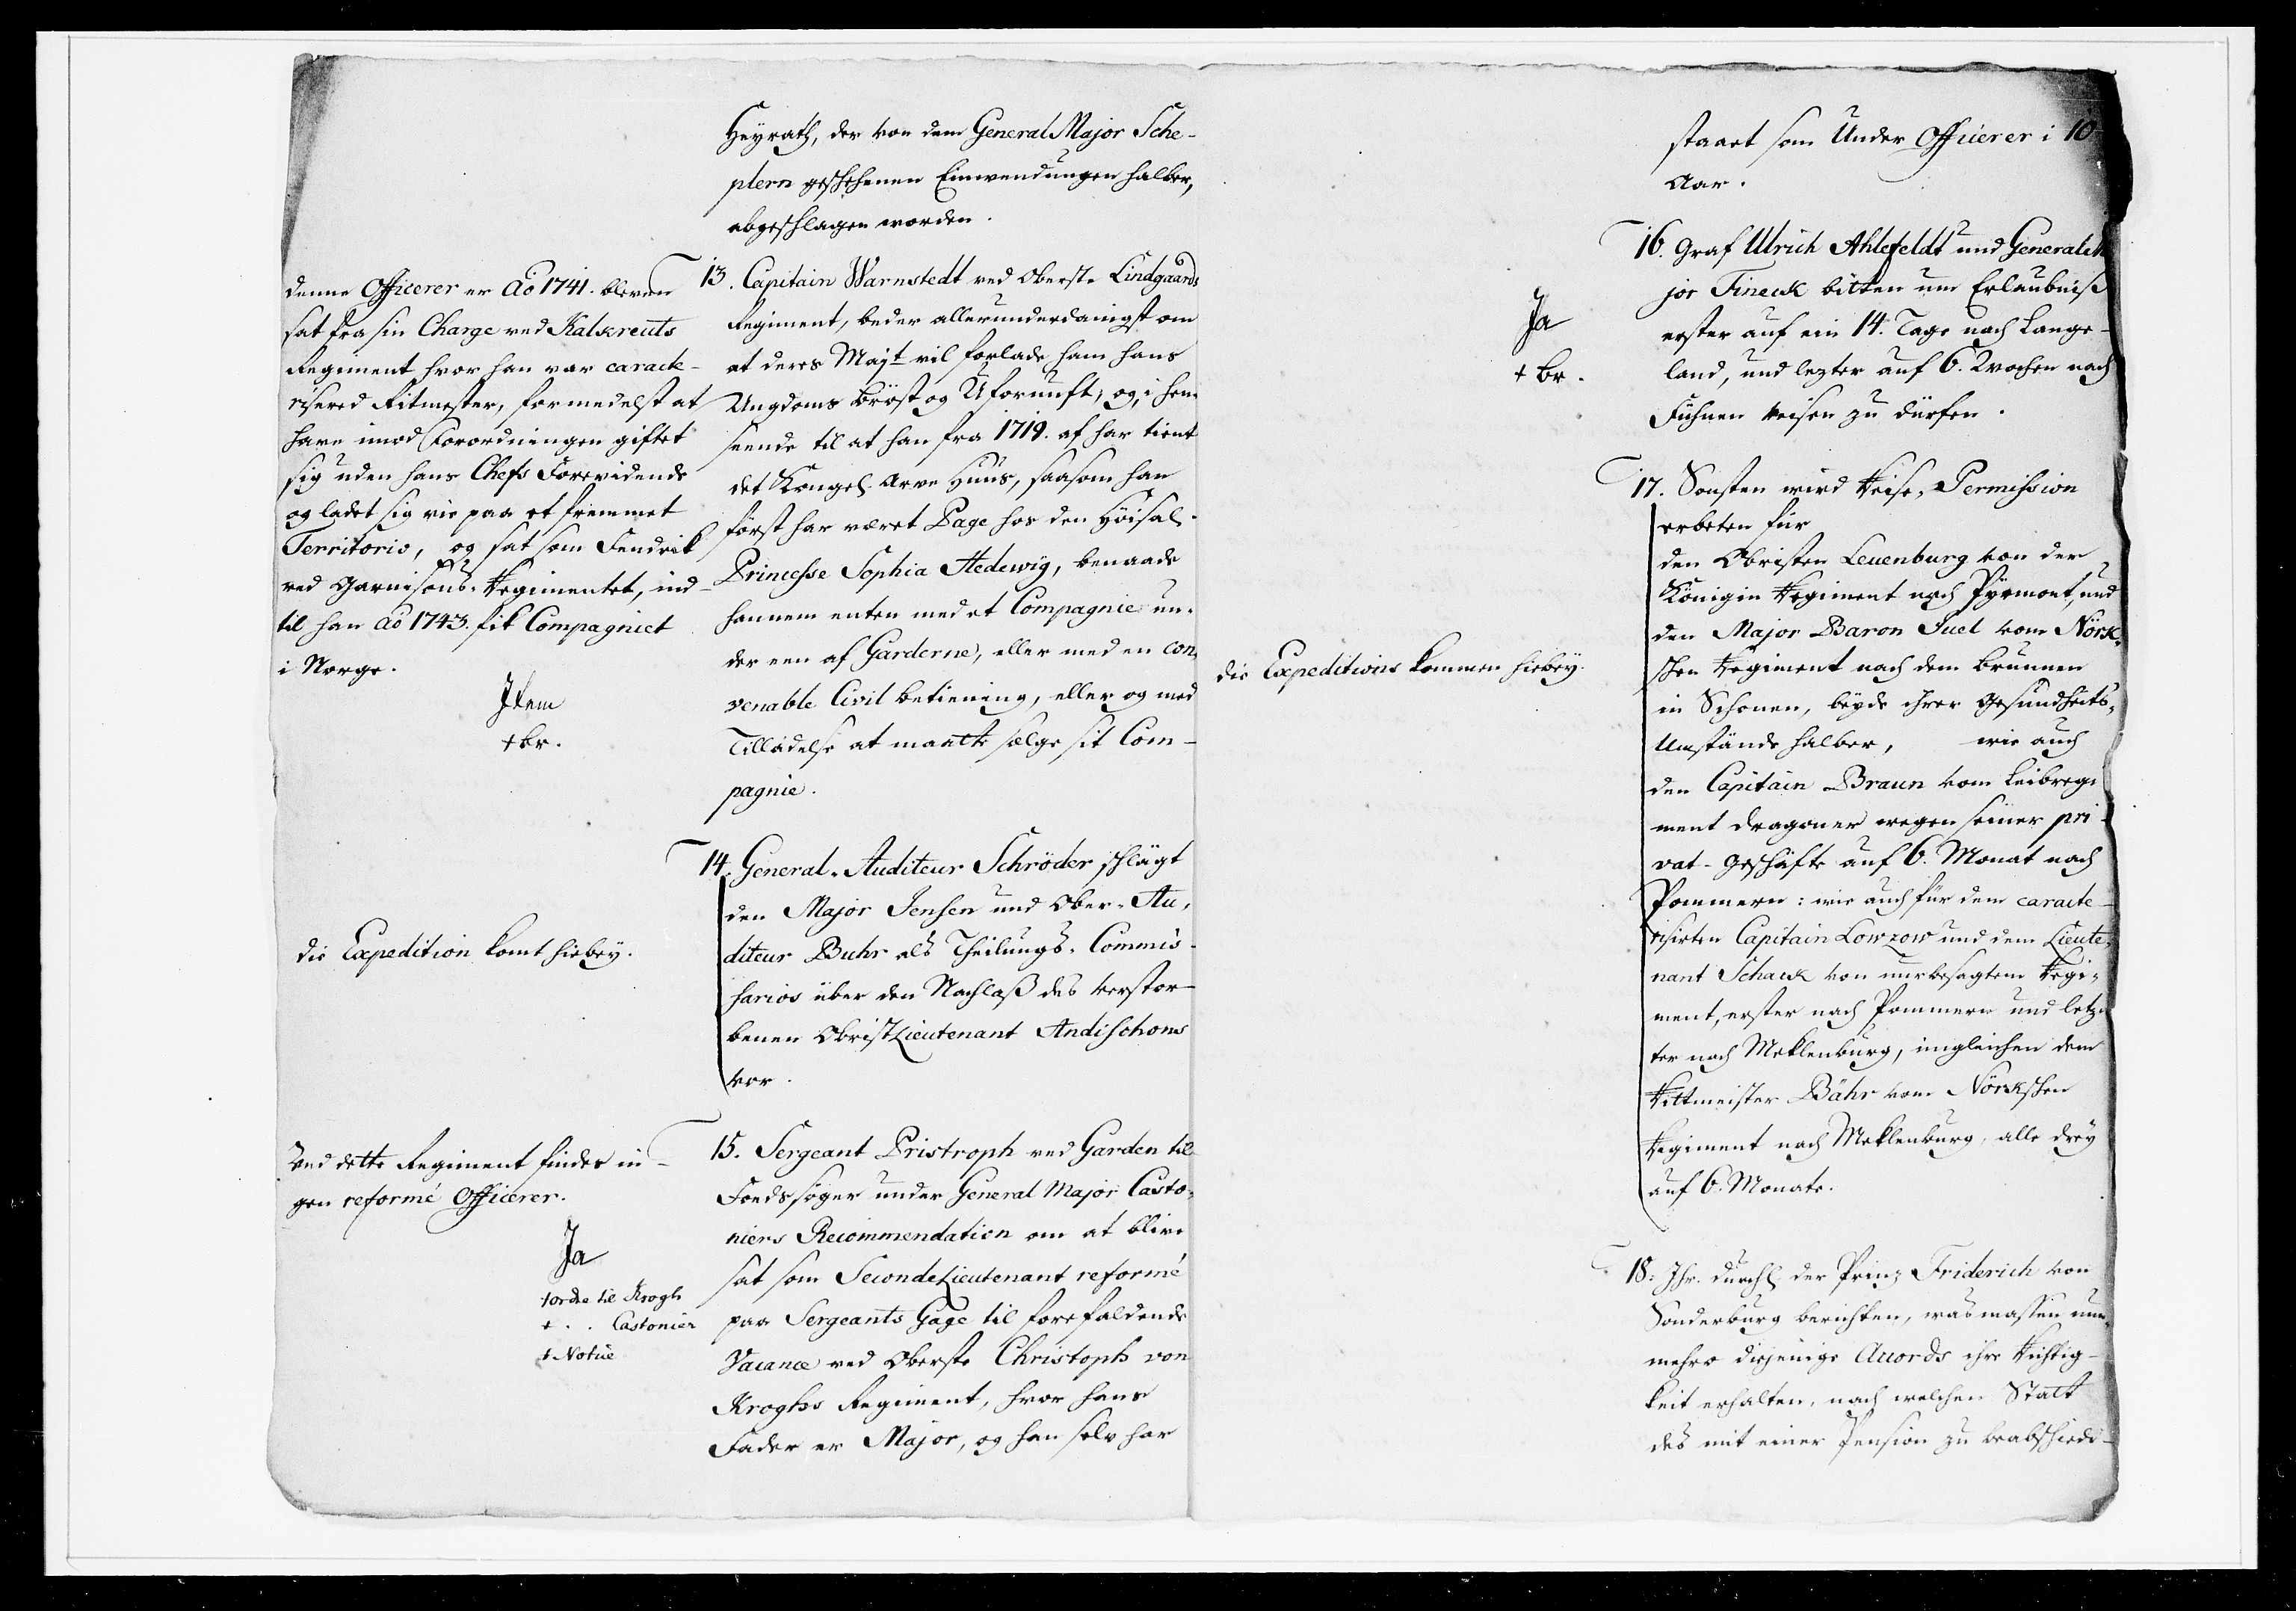 Heyrath, der von dem General Major Sche-
plern geschehenen Einwendungen halber,
abgeschlagen worden.
denne Officerer er Ao 1741. bleven
sat fra sin Charge ved Kalkreuts
Regiment hvor han var carack-
risered Ritmester, formedelst at
have imod Forordningen giftet
sig uden hans Chefs Forevidende
og ladet sig vie paa et fremmet
Territorio, og sat som Fendrik
ved Garnisons-Regimentet, ind-
til han Ao 1743. fik Compagniet
i Norge.
Item
+ br.
13. Capitain Warnstedt ved Oberst. Lindgaards
Regiment, beder allerunderdanigst om
at deres Majt vil forlade ham hans
Ungdoms Bröst og Ufornuft, og, i hen-
seende til at han fra 1719. af har tient
det Kongel. Arve Huus, saasom han
först har været Page hos den Höisal.
Princesse Sophia Hedewig, benaade
hannem enten med et Compagnie un-
der een af Garderne, eller med en con-
venable Civil betiening, eller og med
Tilladelse at maatte sælge sit Com-
pagnie.
die Expedition komt hiebey.
14. General-Auditeur Schröder schlägt
den Major Jensen und Ober-Au-
diteur Buhr als Theilungs-Commis-
sarios über den Nachlaß des verstor-
benen ObristLieutenant Andischons
vor.
Ved dette Regiment findes in-
gen reformé Officerer.
Ja
+ ordre til Krogh
+ . . Castonier
+ Notice
15. Sergeant Pristroph ved Garden til
Foeds söger under General Major Casto-
niers Recommendation om at blive
sat som SecondeLieutenant reformé
paa Sergeants Gage til forefaldende
Vacance ved Oberste Christoph von
Kroghs Regiment, hvor hans
Fader er Major, og han selv har
staaet som Under Officerer i 10
Aar.
Ja
+ br.
16. Graf Ulrich Ahlefeldt und General Ma
jor Fineck bitten um Erlaubniß
erster auf ein 14. Tage nach Lange-
land, und lezter auf 6. Wochen nach
Fühnen reisen zu dürfen.
die Expeditions kommen hiebey.
17. Sonsten wird Reise-Permission
erbeten für
den Obristen Leuenburg von der
Königin Regiment nach Pyrmont, und
den Major Baron Juel vom Nörk-
schen Regiment nach dem Brunnen
in Schonen, beyde ihrer Gesundheits-
Umstände halber, wie auch
den Capitain Braun vom Leibregi
ment Dragoner wegen seiner pri-
vat-Geschäfte auf 6. Monat nach
Pommern: wie auch für dem caracte-
risirten Capitain Lowzow und dem Lieute-
nant Schack von nurbesagtem Regi-
ment, erster nach Pommern und letz-
ter nach Meklenburg, imgleichen dem
Rittmeister Bähr vom Nörkschen
Regiment nach Meklenburg, alle drey
auf 6. Monate.
18. Ihr. Durchl. der Prinz Friderich von
Sonderburg berichten, was massen nun-
mehro diejenige Accords ihre Richtig-
keit erhalten, nach welchen Statt
des mit einer Pension zu beabschiede-